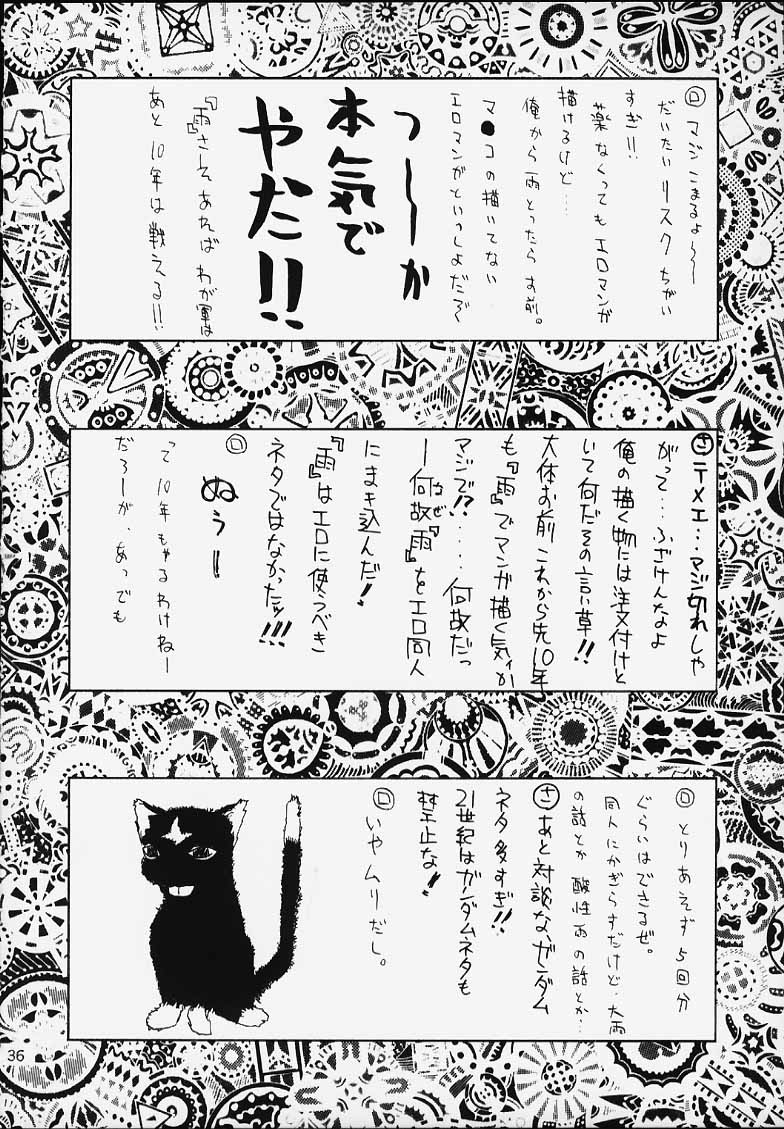 ロ マジこまるよ〜〜
だいたいリスクちがい
すぎ!!
薬なくってもエロマンガ
描けるけど…
俺から雨とったらお前。
マ●コの描いてない
エロマンガといっしょだぞ〜
つ〜〜か
本気で
やだ!!
『雨』さえあればわが軍は
あと10年は戦える!!
さ テメエ…マジ切れしゃ
がって…ふざけんなよ
俺の描く物には注文付けと
いて何だその言い草!!
大体お前これから先10年
も『雨』でマンガ描く気か
マジで!?....何故だっ
ー何故『雨』をエロ同人
なぜ
にまき込んだ!
『雨』はエロに使うべき
ネタではなかったッ!!!
ロ
ぬぅー
って10年もやるわけねー
だろーが、あっでも
ロ とりあえず5回分
ぐらいはできるぜ。
同人にかぎらずだけど.大雨
の話とか酸性雨の話とか…
さ あと対談な、ガンダム
ネタ多すぎ!!
21世紀はガンダムネタも
禁止な!
ロ いやムリだし。
36